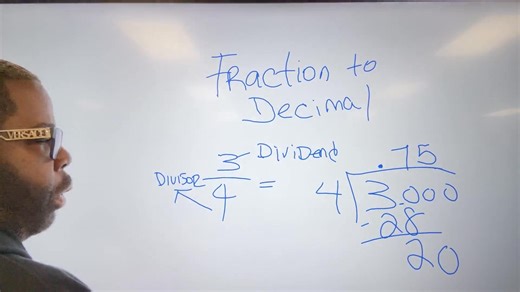 Fraction to
Decimal
VERSACE
3 Dividend
Divisor 4 =
.75
4 3.000
-28
20